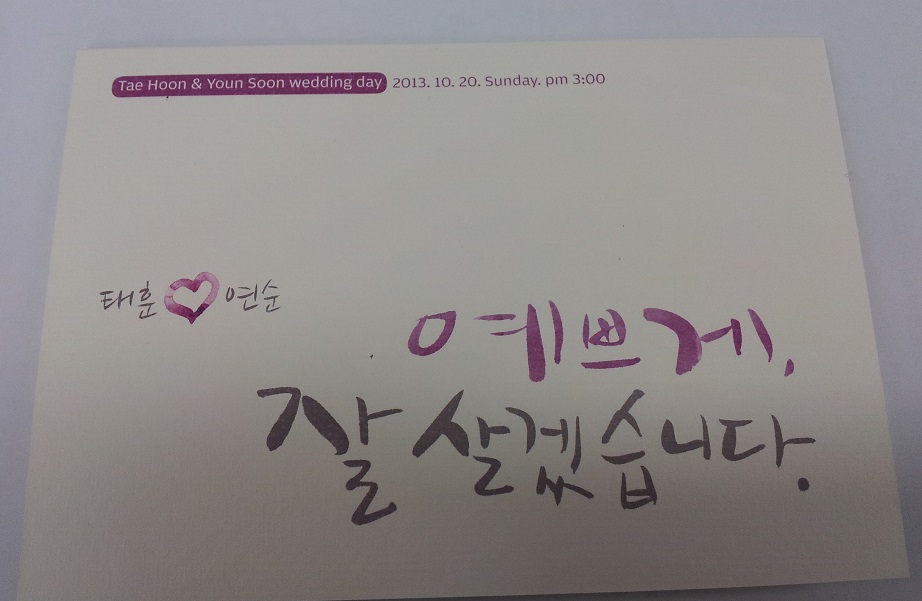 Tae Hoon & Youn Soon wedding day 2013. 10. 20. Sunday. pm 3:00
태훈 연순
예쁘게,
잘 살겠습니다.